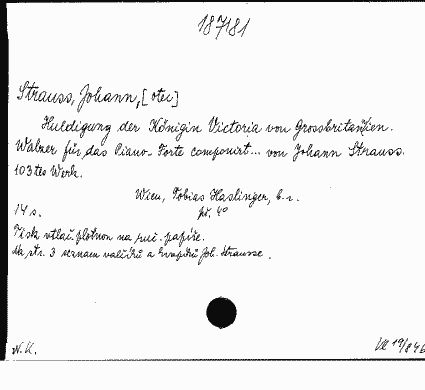 187181
Strauss, Johann, [otec]
Huldigung der Königin Victoria von Grossbritannien.
Walzer für das Piano-Forte componirt... von Johann Strauss.
103tes Werk.
Wien, Tobias Haslinger, b. r.
14 s. př. 4°
Tisk vtlač. plotnou na ruč. papíře.
Na str. 3 seznam valčíků a kvapíků Joh. Strausse.
N.K.